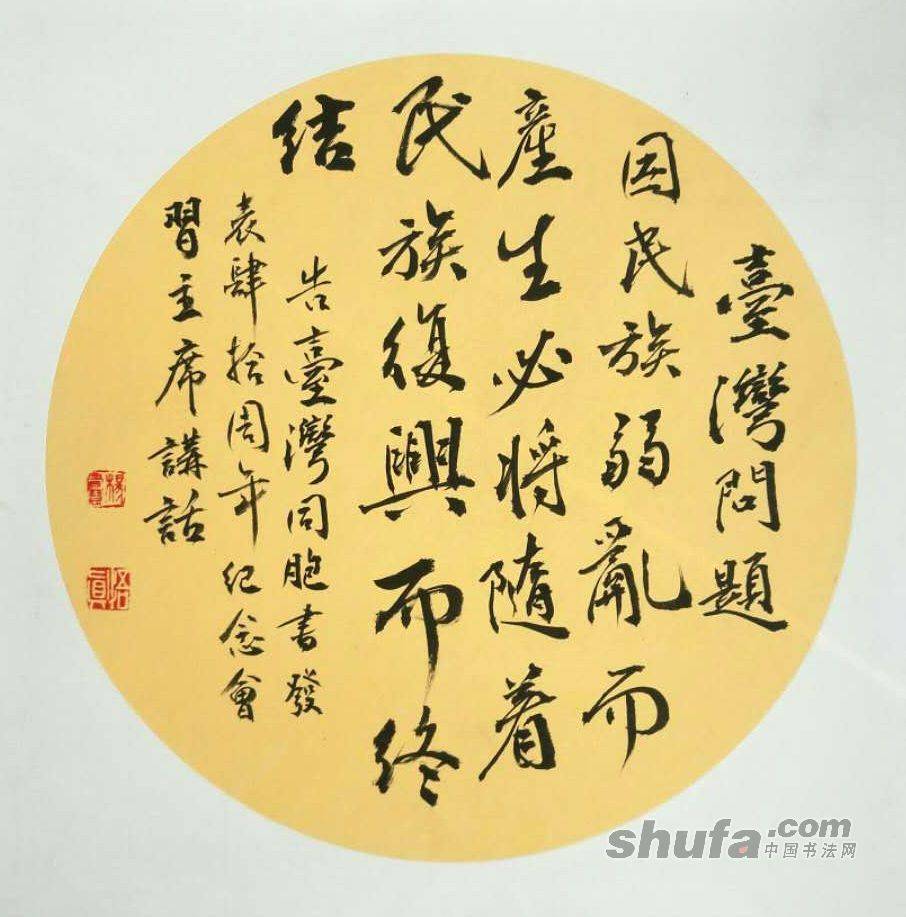 臺灣問題
因民族弱亂而
產生必將隨着
民族復興而終
结
告臺灣同胞書發
表肆拾周年纪念會
習主席講話
shufa.com
中国书法网